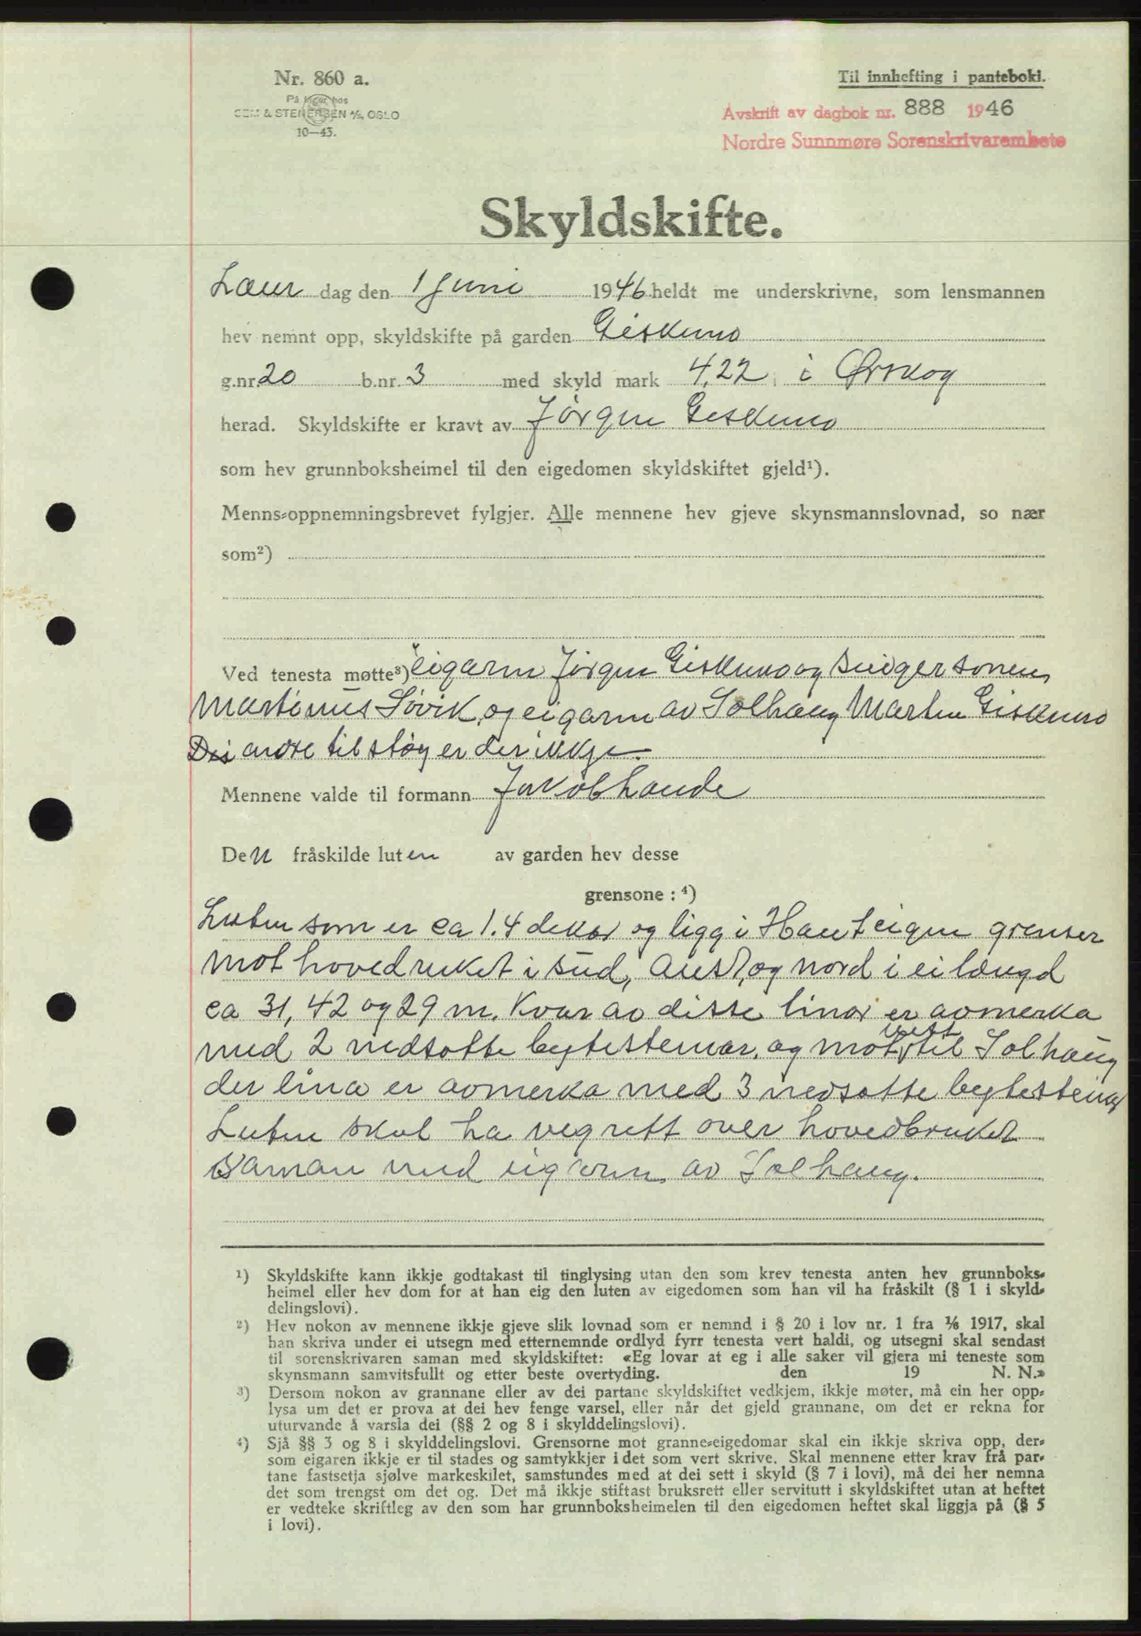 Nr. 860 a.
På lager hos
SEM & STENERSEN A/S, OSLO
10—43.
Til innhefting i panteboki.
Avskrift av dagbok nr. 888 1946
Nordre Sunnmøre Sorenskrivarembete
Skyldskifte.
Laur dag den 1 Juni 1946 heldt me underskrivne, som lensmannen
hev nemnt opp, skyldskifte på garden Giskemo
g.nr. 20 b.nr. 3 med skyld mark 4,22 i Ørskog
herad. Skyldskifte er kravt av Jørgen Giskemo
som hev grunnboksheimel til den eigedomen skyldskiftet gjeld¹).
Menns-oppnemningsbrevet fylgjer. Alle mennene hev gjeve skynsmannslovnad, so nær
som²)
Ved tenesta møtte³) eigarm Jørgen Giskemo og svigersonen
Martinus Søvik, og eigarm av Solhaug Martin Giskemo
Dei andre tilstøy er der ikkje.
Mennene valde til formann Jakob Lande
Den fråskilde luten av garden hev desse
grensone : ⁴)
Luten som er ca 1.4 dekar og ligg i grenser
mot hovedruket i sud, aust, og nord i ei længd
ca 31, 42 og 29 m. Kvar av disse linar er avmerka
med 2 nedsatte bytesteinar, og mot vest til Solhaug
der lina er avmerka med 3 nedsatte bytesteinar
Luten skal ha vegrett over hovedbruket
saman med eigarm av Solhaug.
¹) Skyldskifte kann ikkje godtakast til tinglysing utan den som krev tenesta anten hev grunnboks-
heimel eller hev dom for at han eig den luten av eigedomen som han vil ha fråskilt (§ 1 i skyld-
delingslovi).
²) Hev nokon av mennene ikkje gjeve slik lovnad som er nemnd i § 20 i lov nr. 1 fra ⅙ 1917, skal
han skriva under ei utsegn med etternemnde ordlyd fyrr tenesta vert haldi, og utsegni skal sendast
til sorenskrivaren saman med skyldskiftet: «Eg lovar at eg i alle saker vil gjera mi teneste som
skynsmann samvitsfullt og etter beste overtyding. den 19 N. N.»
³) Dersom nokon av grannane eller av dei partane skyldskiftet vedkjem, ikkje møter, må ein her opp-
lysa um det er prova at dei hev fenge varsel, eller når det gjeld grannane, om det er rekna for
uturvande å varsla dei (§§ 2 og 8 i skylddelingslovi).
⁴) Sjå §§ 3 og 8 i skylddelingslovi. Grensorne mot granne-eigedomar skal ein ikkje skriva opp, der-
som eigaren ikkje er til stades og samtykkjer i det som vert skrive. Skal mennene etter krav frå par-
tane fastsetja sjølve markeskilet, samstundes med at dei sett i skyld (§ 7 i lovi), må dei her nemna
det som trengst om det og. Det må ikkje stiftast bruksrett eller servitutt i skyldskiftet utan at heftet
er vedteke skriftleg av den som har grunnboksheimelen til den eigedomen heftet skal liggja på (§ 5
i lovi).